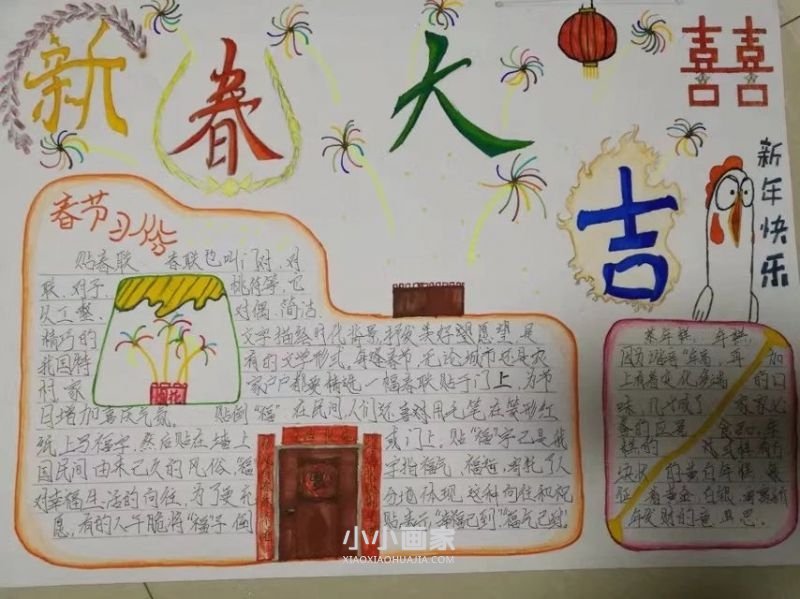 新春大吉
囍
新年快乐
春节习俗
贴春联 春联也叫门对、对
联、对子、桃符等,它
以工整、对偶、简洁、
精巧的文字描绘时代背景,抒发美好愿望,是
我国特有的文学形式。每逢春节,无论城市还是农
村,家家户户都要精选一幅春联贴于门上,为节
日增加喜庆气氛。 贴倒"福" 在民间人们还喜欢用毛笔在菱形红
纸上写福字,然后贴在墙上或门上。贴"福"字也是我
国民间由来已久的风俗,"福"字指福气、福运,寄托了人
对幸福生活的向往,为了更充分地体现这种向往和祝
愿,有的人干脆将"福"字倒贴,表示"幸福已到""福气已到"。
蒸年糕 年糕
因为谐音"年高",再加
上有着变化多端的口
味,几乎成了家家必
备的应景食品。年
糕的式样有方
块状的黄白年糕,象
征着黄金、白银,
年发财的意思。
小小画家
XIAOXIAOHUAJIA.COM